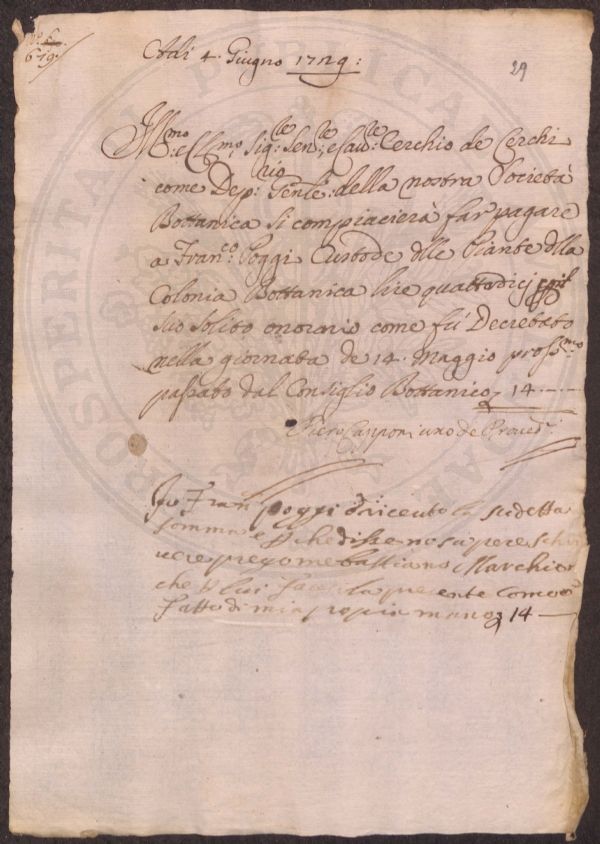 29
Adi 4. Giugno 1729:
Ill:mo e Cl:mo Sig:re Sen:re e Cav:re Cerchio de Cerchi
come Dep:rio Gen:le della nostra Società
Bottanica si compiacierà far pagare
a Fran:co Poggi Custode dlle Piante dlla
Colonia Bottanica lire quattordici
suo solito onorario come fù Decretato
nella giornata de 14. Maggio pross:mo
passato dal Consiglio Bottanico 14.—
Piero Capponi uno de Proved:ri
Jo Fran Poggi ò riceuto la sudetta
somma e p che disse no sapere scri
vere prego me bastiano Marchi
che p lui facessi la presente come ò
fatto di mia propria mano 14 —
PROSPERITATI PUBLICAE